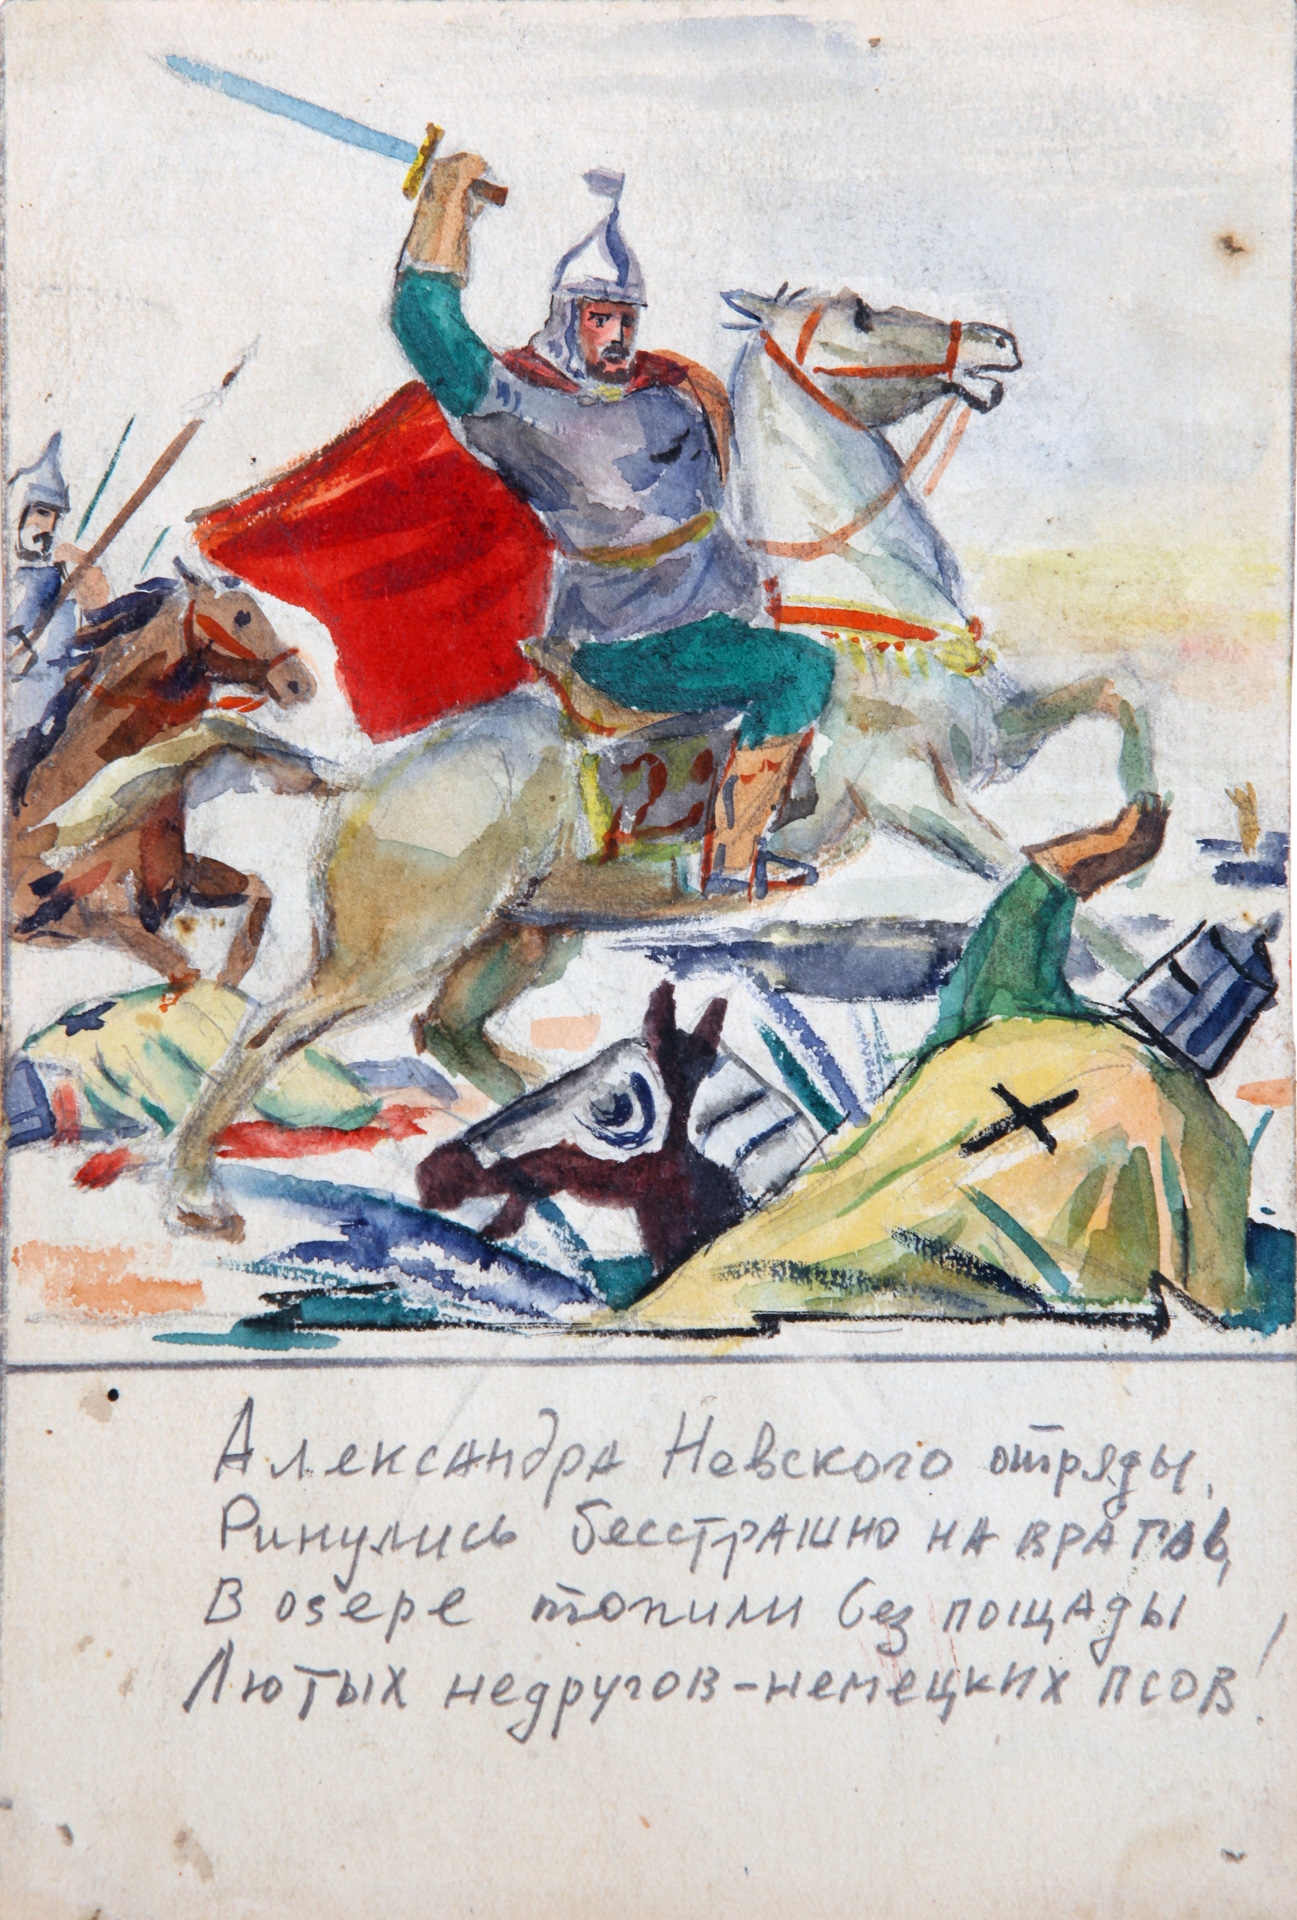 Александра Невского отряды,
Ринулись бесстрашно на врагов,
В озере топили без пощады
Лютых недругов-немецких псов!